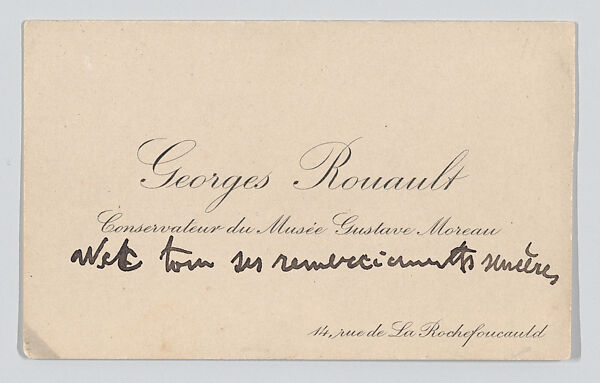 Georges Rouault
Conservateur du Musée Gustave Moreau
Avec tous ses remerciements sincères
14, rue de La Rochefoucauld